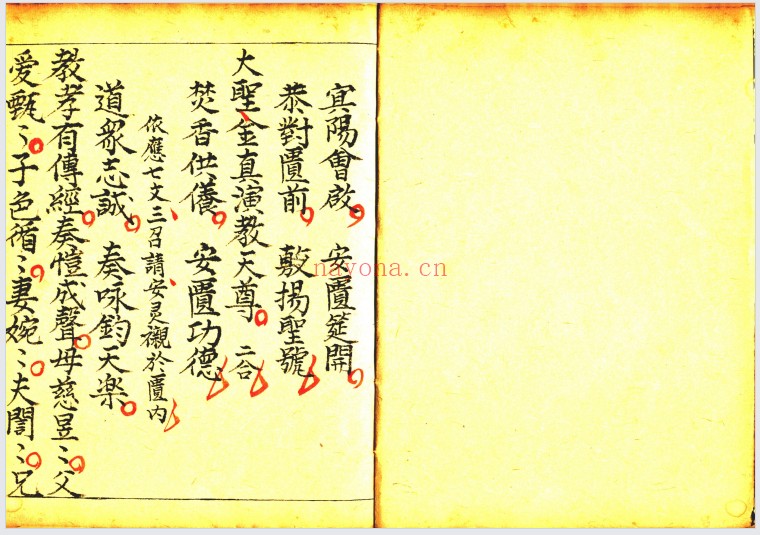 冥陽會啟 安匱筵開
恭對匱前 敷揚聖號
大聖金真演教天尊 二合
焚香供儀 安匱功德
依應七文三召請安灵襯於匱内
道衆志誠 奏咏鈞天楽
教孝有傳經奏愷成聲母慈昱〻父
愛甄〻子色循〻妻婉〻夫誾〻兄
nayona.cn